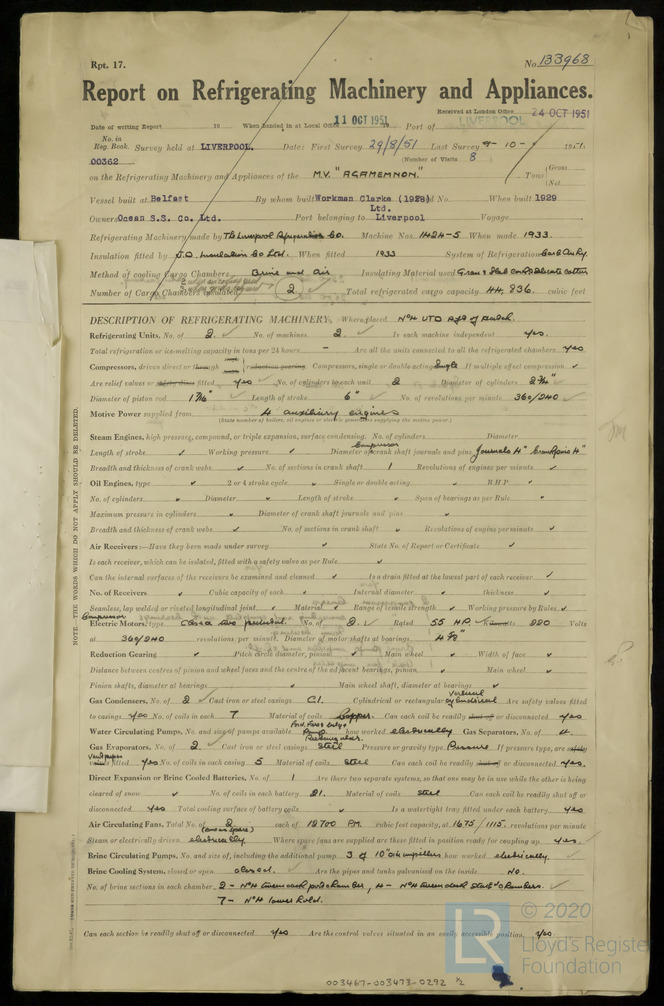 Rpt. 17.
No. 133968
Report on Refrigerating Machinery and Appliances.
Received at London Office 24 OCT 1951
Date of writing Report 19 When handed in at Local Office 11 OCT 1951 19 Port of LIVERPOOL
No. in Reg. Book. Survey held at LIVERPOOL. Date: First Survey 29/8/51 Last Survey 9-10-1951.
00362 (Number of Visits 8)
on the Refrigerating Machinery and Appliances of the M.V. "AGAMEMNON." Tons {Gross {Net
Vessel built at Belfast By whom built Workman Clarke (1928) Ltd. Yard No. When built 1929
Owners Ocean S.S. Co. Ltd. Port belonging to Liverpool Voyage
Refrigerating Machinery made by The Liverpool Refrigeration Co. Machine Nos. 1424-5 When made 1933.
Insulation fitted by J.D. Insulation Co Ltd. When fitted 1933 System of Refrigeration Carb Anhy.
Method of cooling Cargo Chambers Brine and Air Insulating Material used
Number of Cargo Chambers insulated 2 Total refrigerated cargo capacity 44,836. cubic feet
DESCRIPTION OF REFRIGERATING MACHINERY. Where placed No 4 UTD
Refrigerating Units, No. of 2. No. of machines 2 Is each machine independent yes.
Total refrigeration or ice-melting capacity in tons per 24 hours - Are all the units connected to all the refrigerated chambers yes
Compressors, driven direct or through reduction gearing. Compressors, single or double acting Single If multiple effect compression
Are relief valves or safety discs fitted yes No. of cylinders to each unit 2 Diameter of cylinders 2 3/4"
Diameter of piston rod 1 7/16" Length of stroke 6" No. of revolutions per minute 360/240
Motive Power supplied from 4 auxiliary engines
(State number of boilers, oil engines or electric generators supplying the motive power.)
Steam Engines, high pressure, compound, or triple expansion, surface condensing. No. of cylinders Diameter
Length of stroke Working pressure Diameter of Compressor crank shaft journals and pins Journals 4" Crankpins 4"
Breadth and thickness of crank webs No. of sections in crank shaft 1 Revolutions of engines per minute
Oil Engines, type 2 or 4 stroke cycle Single or double acting B.H.P.
No. of cylinders Diameter Length of stroke Span of bearings as per Rule
Maximum pressure in cylinders Diameter of crank shaft journals and pins
Breadth and thickness of crank webs No. of sections in crank shaft Revolutions of engines per minute
Air Receivers:—Have they been made under survey State No. of Report or Certificate
Is each receiver, which can be isolated, fitted with a safety valve as per Rule
Can the internal surfaces of the receivers be examined and cleaned Is a drain fitted at the lowest part of each receiver
No. of Receivers Cubic capacity of each Internal diameter thickness
Seamless, lap welded or riveted longitudinal joint Material Range of tensile strength Working pressure by Rules
Compressor
Electric Motors, type No. of 2. Rated 55 H.P. Kilowatts 220 Volts
at 360/240 revolutions per minute. Diameter of motor shafts at bearings.
Reduction Gearing Pitch circle diameter, pinion Main wheel Width of face
Distance between centres of pinion and wheel faces and the centre of the adjacent bearings, pinion Main wheel
Pinion shafts, diameter at bearings Main wheel shaft, diameter at bearings
Gas Condensers, No. of 2 Cast iron or steel casings C.I. Cylindrical or rectangular vertical cylindrical Are safety valves fitted
to casings yes No. of coils in each 7 Material of coils Copper. Can each coil be readily shut off or disconnected yes
Water Circulating Pumps, No. and size of pumps available how worked electrically Gas Separators, No. of 4
Gas Evaporators, No. of 2. Cast iron or steel casings steel Pressure or gravity type Pressure If pressure type, are safety
valves fitted yes No. of coils in each casing 5 Material of coils steel Can each coil be readily shut off or disconnected yes.
Direct Expansion or Brine Cooled Batteries, No. of 1 Are there two separate systems, so that one may be in use while the other is being
cleared of snow No. of coils in each battery 21. Material of coils steel Can each coil be readily shut off or
disconnected yes Total cooling surface of battery coils Is a watertight tray fitted under each battery yes
Air Circulating Fans, Total No. of 2 (one as spare) each of 12700 P.M. cubic feet capacity, at 1675/1115. revolutions per minute
Steam or electrically driven electrically Where spare fans are supplied are these fitted in position ready for coupling up yes.
Brine Circulating Pumps, No. and size of, including the additional pump 3 of 10" dia impellers how worked electrically.
Brine Cooling System, closed or open closed. Are the pipes and tanks galvanised on the inside No.
No. of brine sections in each chamber 2 - No 4 tweendeck port chamber, 4 - No 4 tweendeck starbd chambers.
7 - No 4 lower hold.
Can each section be readily shut off or disconnected yes Are the control valves situated in an easily accessible position yes.
NOTE.—THE WORDS WHICH DO NOT APPLY SHOULD BE DELETED.
© 2020
LR
Lloyd's Register
Foundation
003467-003473-0292 1/2